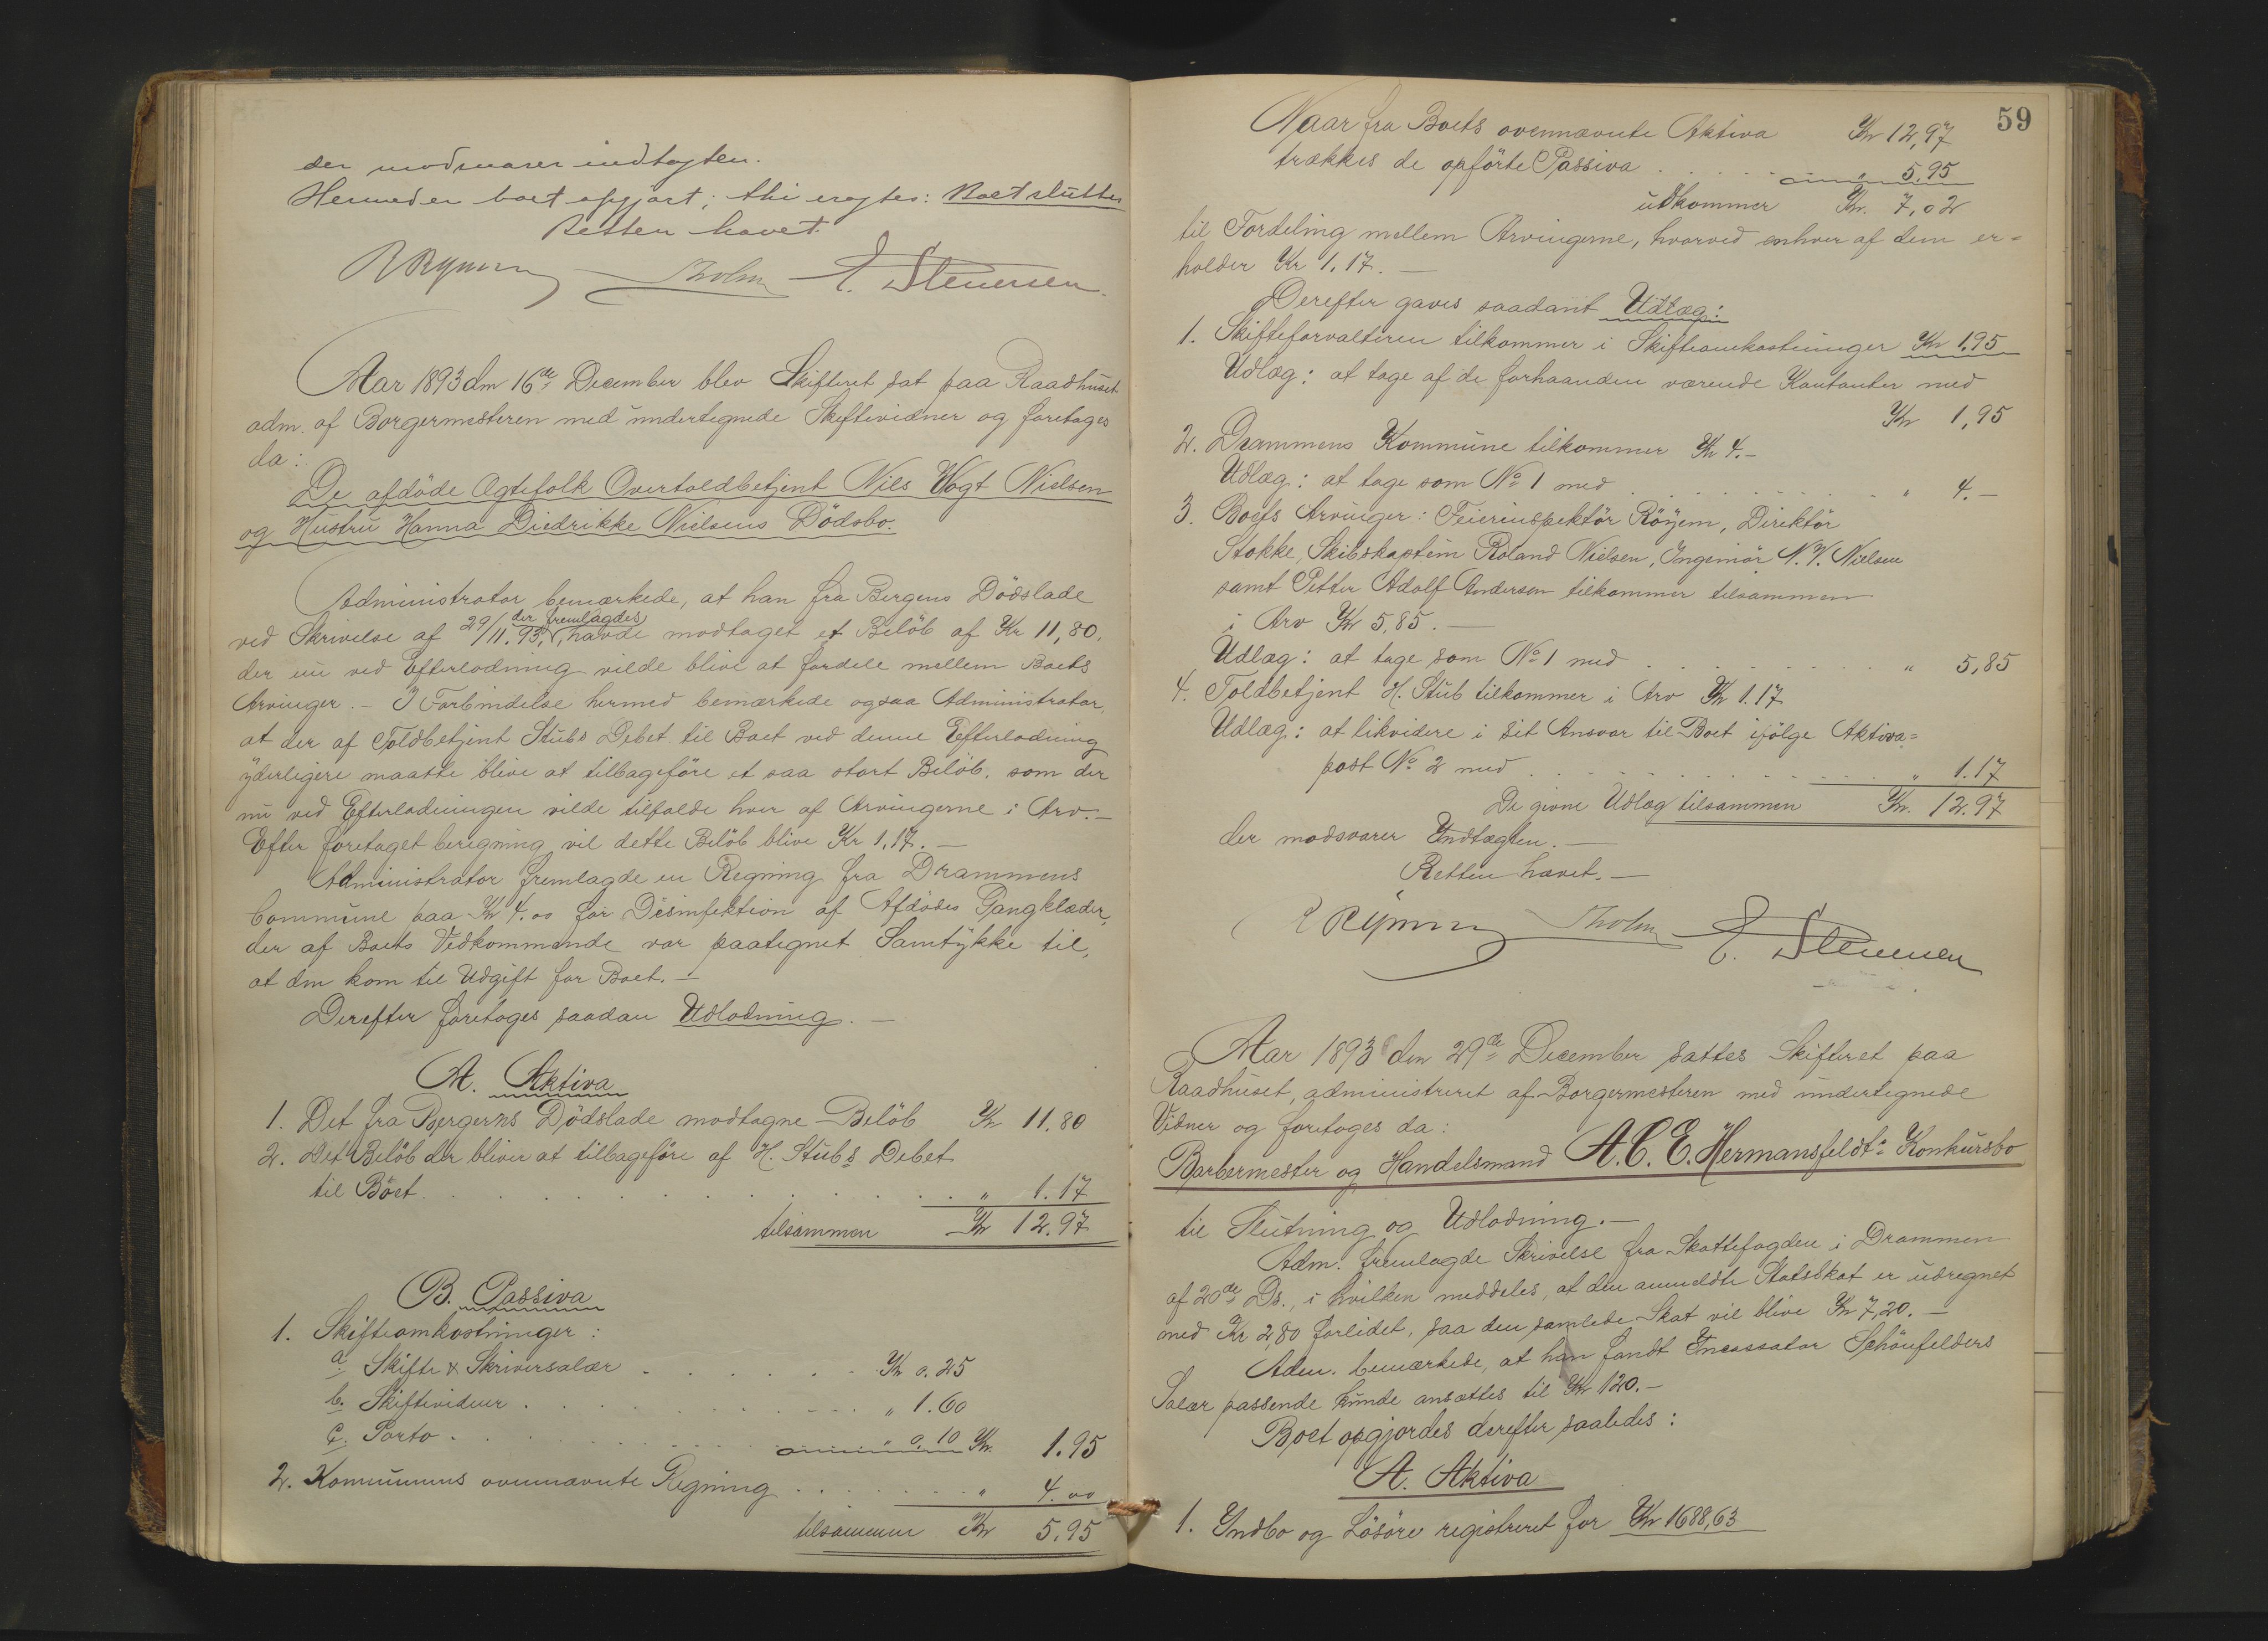 der modsvarer indtægten.
Hermed er boet opgjort; thi eragtes: Boet sluttes
Retten hævet.
E. Stenersen.
Aar 1893 den 16de December blev Skifteret sat paa Raadhuset
adm. af Borgermesteren med undertegnede Skiftevidner og foretages
da:
De afdöde Ægtefolk Overtoldbetjent Nils Vogt Nielsen
og Hustru Hanna Diedrikke Nielsens Dödsbo.
Administrator bemærkede, at han fra Bergens Dödslade
der fremlagdes
ved Skrivelse af 29/11.93, havde modtaget et Belöb af Kr 11,80.
der nu ved Efterlodning vilde blive at fordele mellem Boets
Arvinger. – I Forbindelse hermed bemærkede ogsaa Administrator,
at der af Toldbetjent Stubs Debet til Boet ved denne Efterlodning
yderligere maatte blive at tilbageföre et saa stort Belöb, som der
nu ved Efterlodningen vilde tilfalde hver af Arvingerne i Arv. –
Efter foretaget beregning vil dette Belöb blive Kr 1,17. –
Administrator fremlagde en Regning fra Drammens
Commune paa Kr 4.00 for Desinfektion af Afdödes Gangklæder,
der af Boets Vedkommende var paategnet Samtykke til,
at den kom til Udgift for Boet. –
Derefter foretoges saadan Udlodning. –
A. Aktiva
1. Det fra Bergens Dödslade modtagne Belöb Kr 11.80
2. Det Belöb der bliver at tilbageföre af H. Stubs Debet
til Boet . . . . . . . . . . . " 1.17
tilsammen Kr 12.97
B. Passiva
1. Skifteomkostninger:
a. Skifte & Skriversalær . . . . . Kr 0.25
b. Skiftevidner . . . . . . . . " 1.60
c. Porto . . . . . . . " 0.10 Kr. 1.95
2. Kommunens ovennævnte Regning . . . . . . " 4.00
tilsammen Kr 5.95
59
Naar fra Boets ovennævnte Aktiva Kr 12,97
trækkes de opförte Passiva . . . . . 5.95
udkommer Kr. 7,02
til Fordeling mellem Arvingerne, hvorved enhver af dem er=
holder Kr 1.17. –
Derefter gaves saadant Udlæg:
1. Skifteforvalteren tilkommer i Skifteomkostninger Kr 1.95
Udlæg: at tage af de forhaanden værende Kontanter med
Kr 1,95
2. Drammens Kommune tilkommer Kr 4.–
Udlæg: at tage som No 1 med . . . . . . . . . " 4.–
3. Boets Arvinger: Feierinspektör Röyem, Direktör
Stokke, Skibskaptein Roland Nielsen, Ingeniör N. V. Nielsen
samt Petter Adolf Andersen tilkommer tilsammen
i Arv Kr 5,85. –
Udlæg: at tage som No 1 med . . . . . . . . . " 5,85
4. Toldbetjent H. Stub tilkommer i Arv Kr 1.17
Udlæg: at likvidere i sit Ansvar til Boet ifölge Aktiva=
post No 2 med . . . . . . . . . . . " 1.17
De givne Udlæg tilsammen Kr. 12.97
der modsvarer Indtægten. –
Retten hævet. –
E. Stenersen
Aar 1893 den 29de December sattes Skifteret paa
Raadhuset, administreret af Borgermesteren med undertegnede
Vidner og foretoges da:
Barbermester og Handelsmand A. C. E. Hermansfeldts Konkursbo
til Slutning og Udlodning. –
Adm. fremlagde Skrivelse fra Skattefogden i Drammen
af 20de Ds., i hvilken meddeles, at den anmeldte Statsskat er udregnet
med Kr 2,80 forlidet, saa den samlede Skat vil blive Kr 7,20. –
Adm. bemærkede, at han fandt Incassator Schönfelders
Salær passende kunde ansættes til Kr 120.–
Boet opgjordes derefter saaledes:
A. Aktiva
1. Indbo og Lösöre registreret for Kr 1688,63